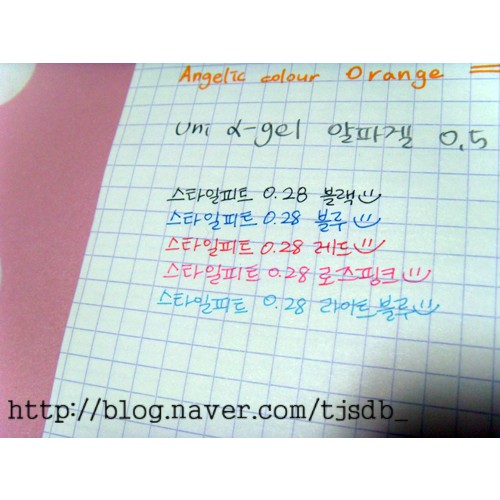 Angelic colour Orange
uni α-gel 알파겔 0.5
스타일피트 0.28 블랙
스타일피트 0.28 블루
스타일피트 0.28 레드
스타일피트 0.28 로즈핑크
스타일피트 0.28 라이트블루
http://blog.naver.com/tjsdb_